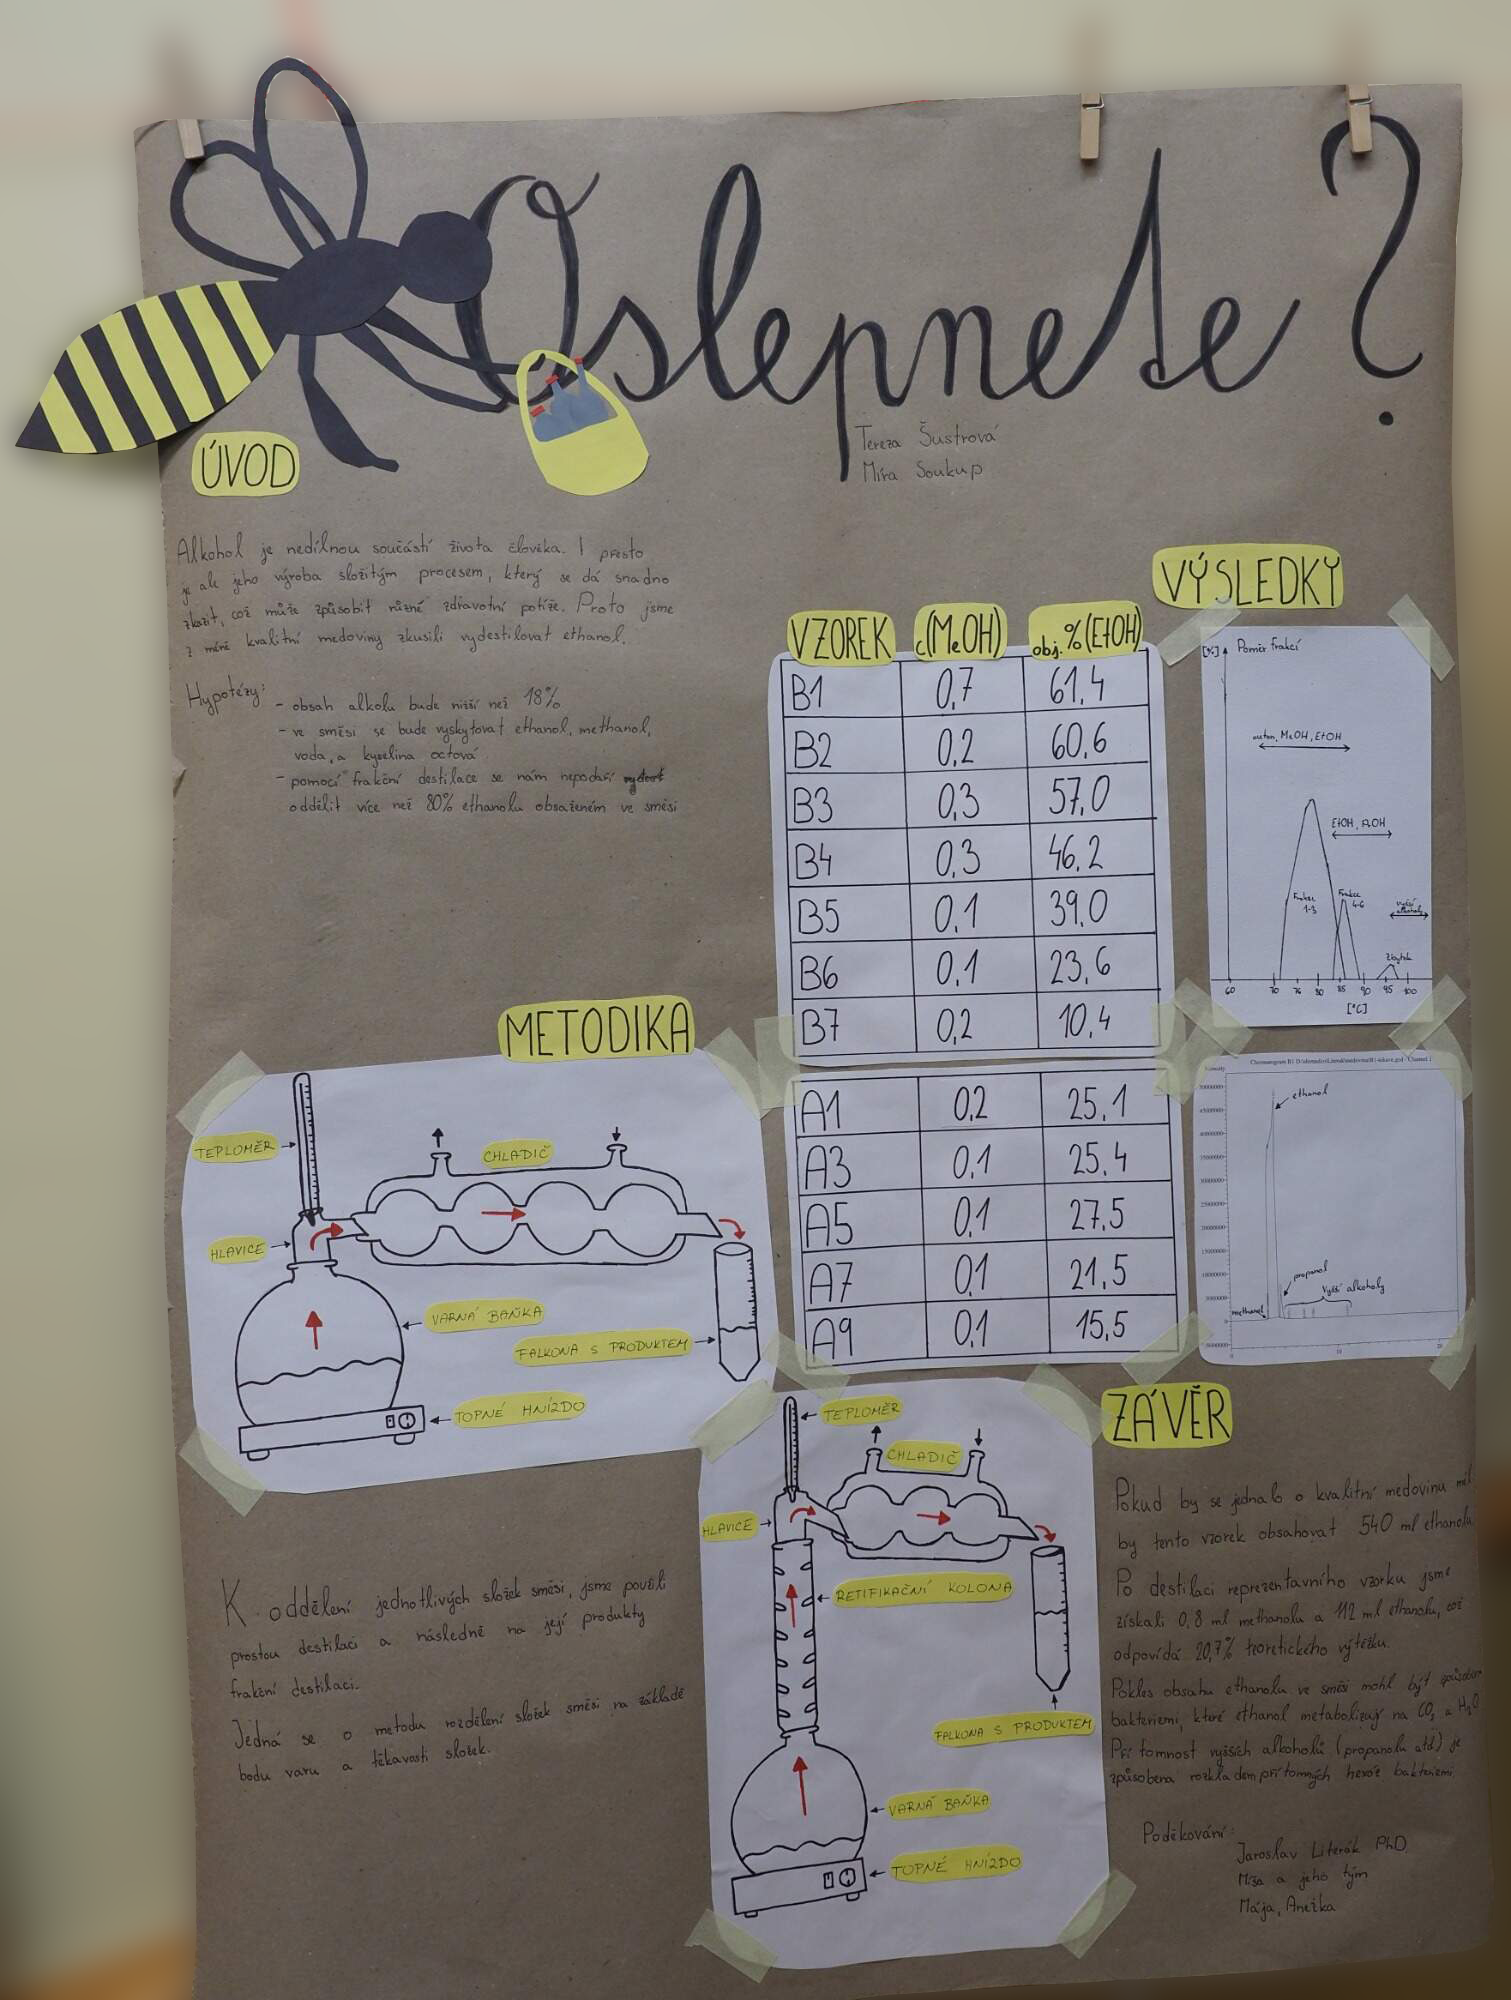 Oslepnete?
Tereza Šustrová
Míra Soukup
ÚVOD
Alkohol je nedílnou součástí života člověka. I přesto
je ale jeho výroba složitým procesem, který se dá snadno
zkazit, což může způsobit různé zdravotní potíže. Proto jsme
z méně kvalitní medoviny zkusili vydestilovat ethanol.
Hypotézy:
- obsah alkolu bude nižší než 18%
- ve směsi se bude vyskytovat ethanol, methanol,
voda, a kyselina octová
- pomocí frakční destilace se nám nepodaří
oddělit více než 80% ethanolu obsaženém ve směsi
METODIKA
TEPLOMĚR
CHLADIČ
HLAVICE
VARNÁ BAŇKA
FALKONA S PRODUKTEM
TOPNÉ HNÍZDO
K oddělení jednotlivých složek směsi, jsme použili
prostou destilaci a následně na její produkty
frakční destilaci.
Jedná se o metodu rozdělení složek směsi na základě
bodu varu a těkavosti složek.
TEPLOMĚR
CHLADIČ
HLAVICE
RETIFIKAČNÍ KOLONA
FALKONA S PRODUKTEM
VARNÁ BAŇKA
TOPNÉ HNÍZDO
VÝSLEDKY
VZOREK c(MeOH) obj.%(EtOH)
B1 0,7 61,4
B2 0,2 60,6
B3 0,3 57,0
B4 0,3 46,2
B5 0,1 39,0
B6 0,1 23,6
B7 0,2 10,4
A1 0,2 25,1
A3 0,1 25,4
A5 0,1 27,5
A7 0,1 21,5
A9 0,1 15,5
[%] Poměr frakcí
MeOH, EtOH
EtOH,
Frakce
1-3
Frakce
4-6
vyšší
alkoholy
Zbytek
60 70 76 80 85 90 95 100
[°C]
ethanol
propanol
vyšší alkoholy
methanol
0 10 20
ZÁVĚR
Pokud by se jednalo o kvalitní medovinu měl
by tento vzorek obsahovat 540 ml ethanolu.
Po destilaci reprezentavního vzorku jsme
získali 0,8 ml methanolu a 112 ml ethanolu, což
odpovídá 20,7% teoretického výtěžku.
Pokles obsahu ethanolu ve směsi mohl být způsoben
bakteriemi, které ethanol metabolizají na CO₂ a H₂O
Přítomnost vyšších alkoholů (propanolu atd.) je
způsobena rozkladem přítomných hexóz bakteriemi
Poděkování:
Jaroslav Literák PhD.
Míša a jeho tým
Mája, Anežka